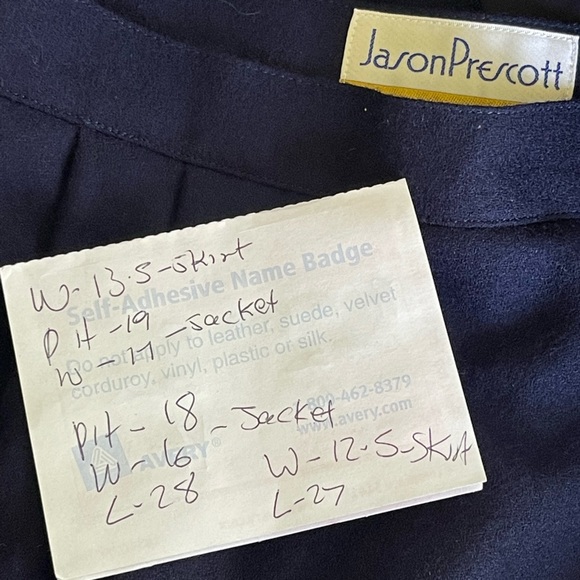 Jason Prescott
W-13.5-skirt
Self-Adhesive Name Badge
Pit-19
W-17-Jacket
Do not apply to leather, suede, velvet
corduroy, vinyl, plastic or silk.
Pit-18
W-16-Jacket
L-28
800-462-8379
www.avery.com
AVERY
W-12.5-Skirt
L-27